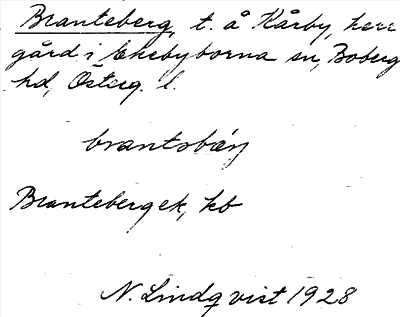 Branteberg, t. å Kårby, herr
gård i Ekebyborna sn, Boberg
hd, Österg. l.
brantsbäŋ
Brantebergek, kb
N. Lindqvist 1928